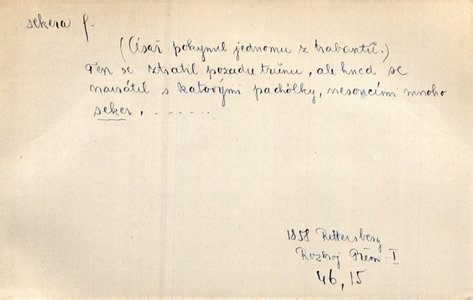 sekera f.
(Císař pokynul jednomu z trabantů.)
Ten se ztratil pozadu trůnu, ale hned se
navrátil s katovými pacholky, nesoucími mnoho
seker, . . . . . . .
1858 Rittersberg
Rozbroj Přem. I
46, 15